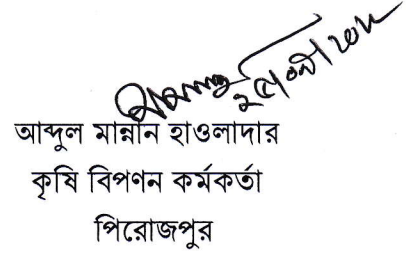 আব্দুল মান্নান হাওলাদার
কৃষি বিপণন কর্মকর্তা
পিরোজপুর